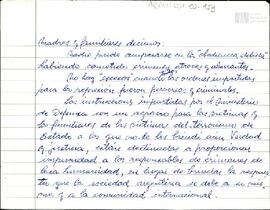 Madres y familiares decimos:
Nadie puede ampararse en la "obediencia debida"
habiendo cometido crímenes atroces y aberrantes.
No hay "excesos" cuando las órdenes impartidas
para la represión fueron perversas y criminales.
Las instrucciones impartidas por el Ministerio
de Defensa son un agravio para las víctimas y
los familiares de las víctimas del terrorismo de
Estado a los que no se les brinda aún Verdad
y Justicia, están destinadas a proporcionar
impunidad a los responsables de crímenes de
lesa humanidad, en lugar de
que la sociedad argentina se debe a si mis
ma y a la comunidad internacional.